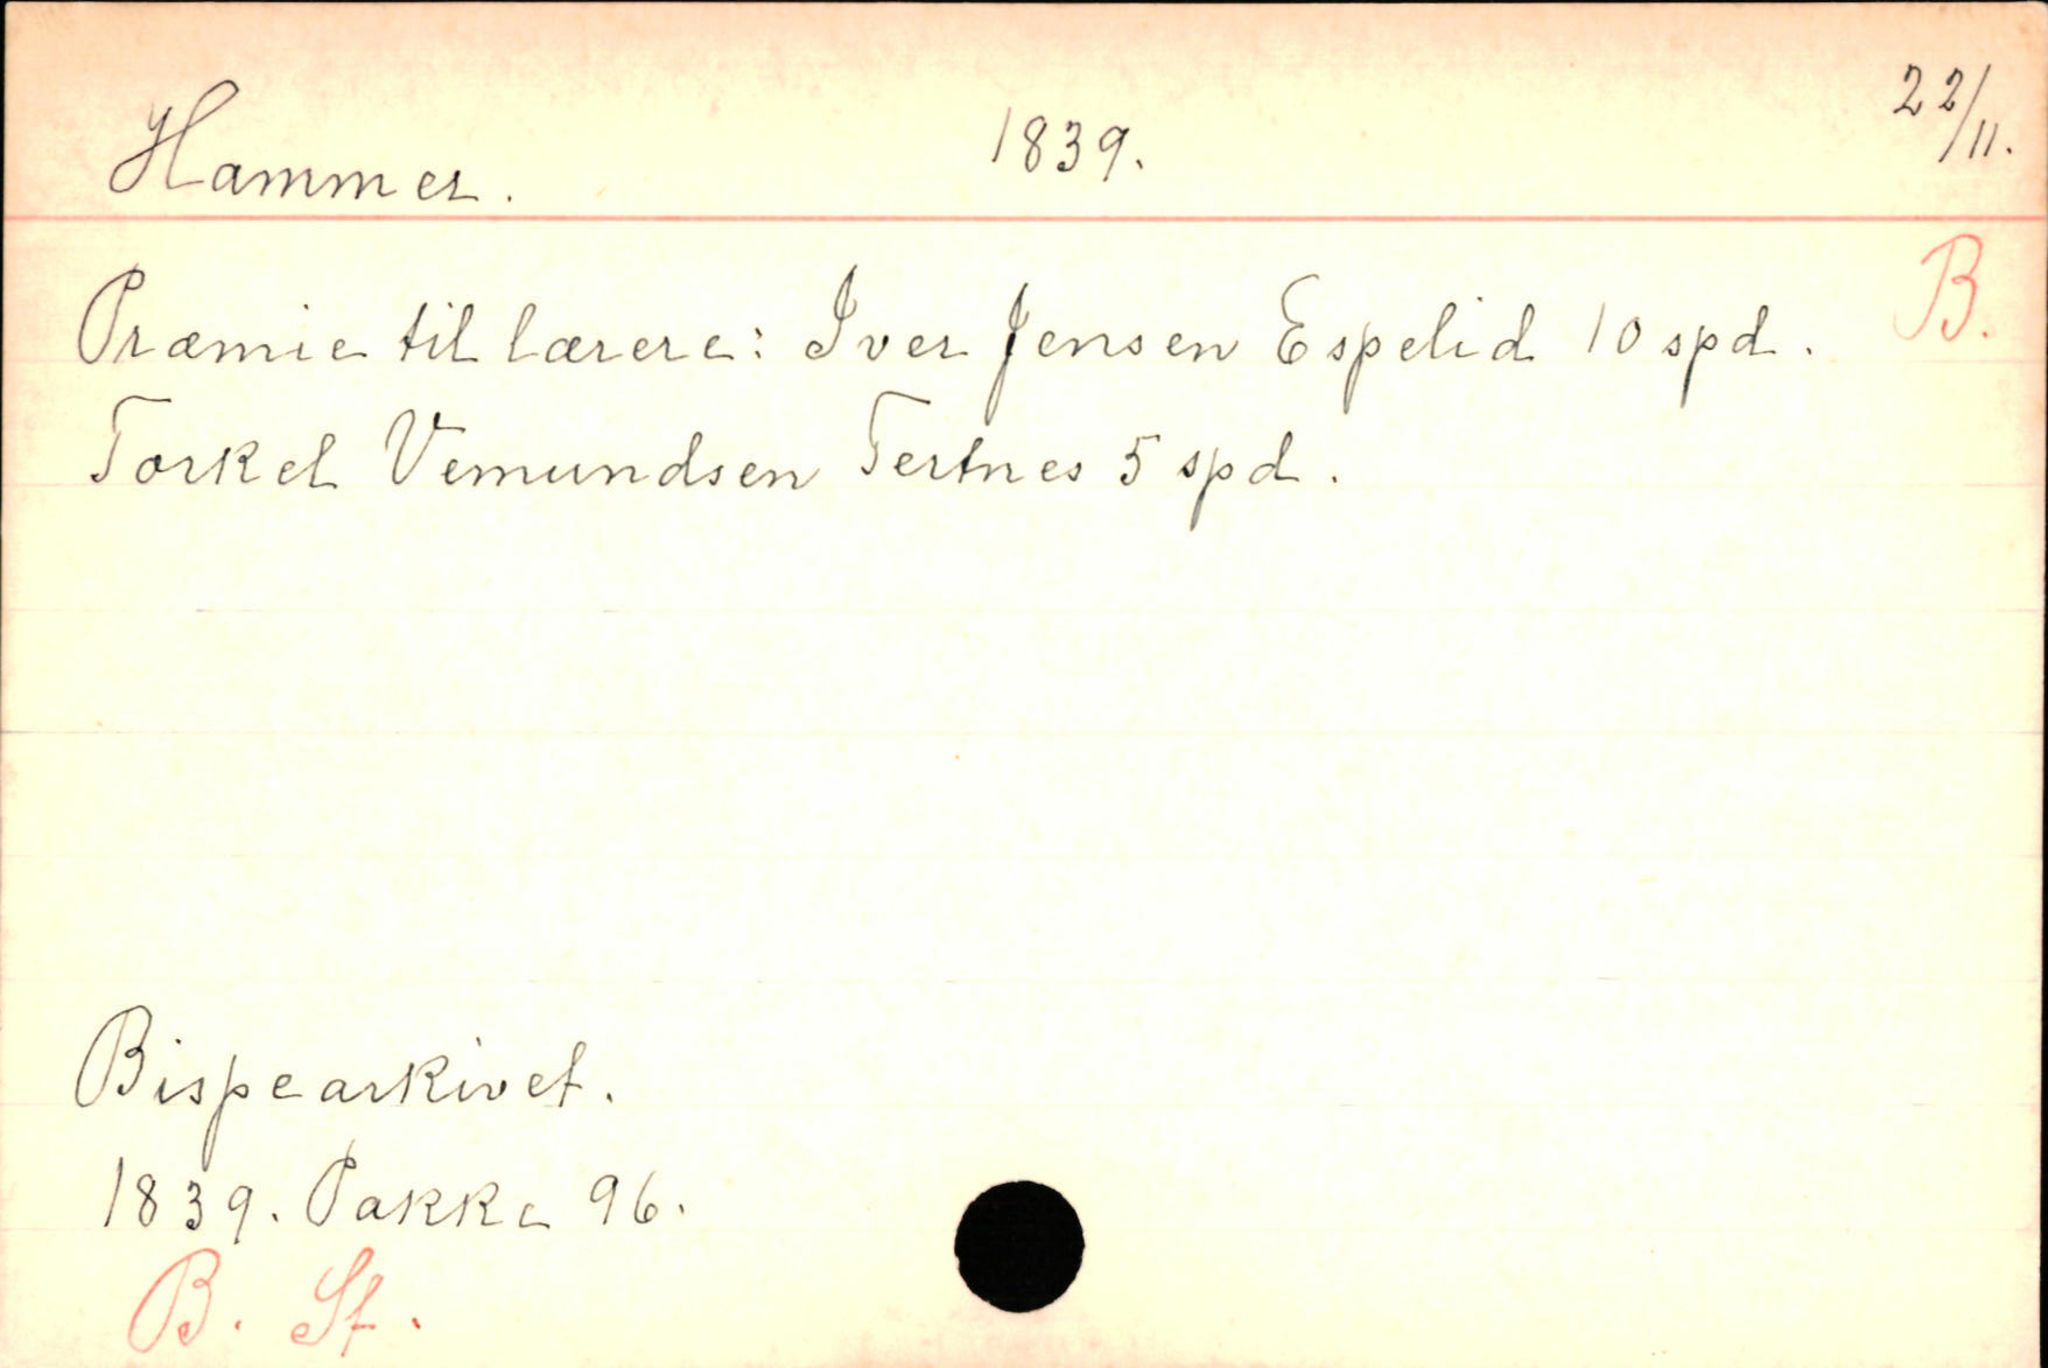 Hammer. 1839. 22/11.
B.
Præmie til lærere: Iver Jensen Espelid 10 spd.
Torkel Vemundsen Tertnes 5 spd.
Bispearkivet.
1839. Pakke 96.
B. St.